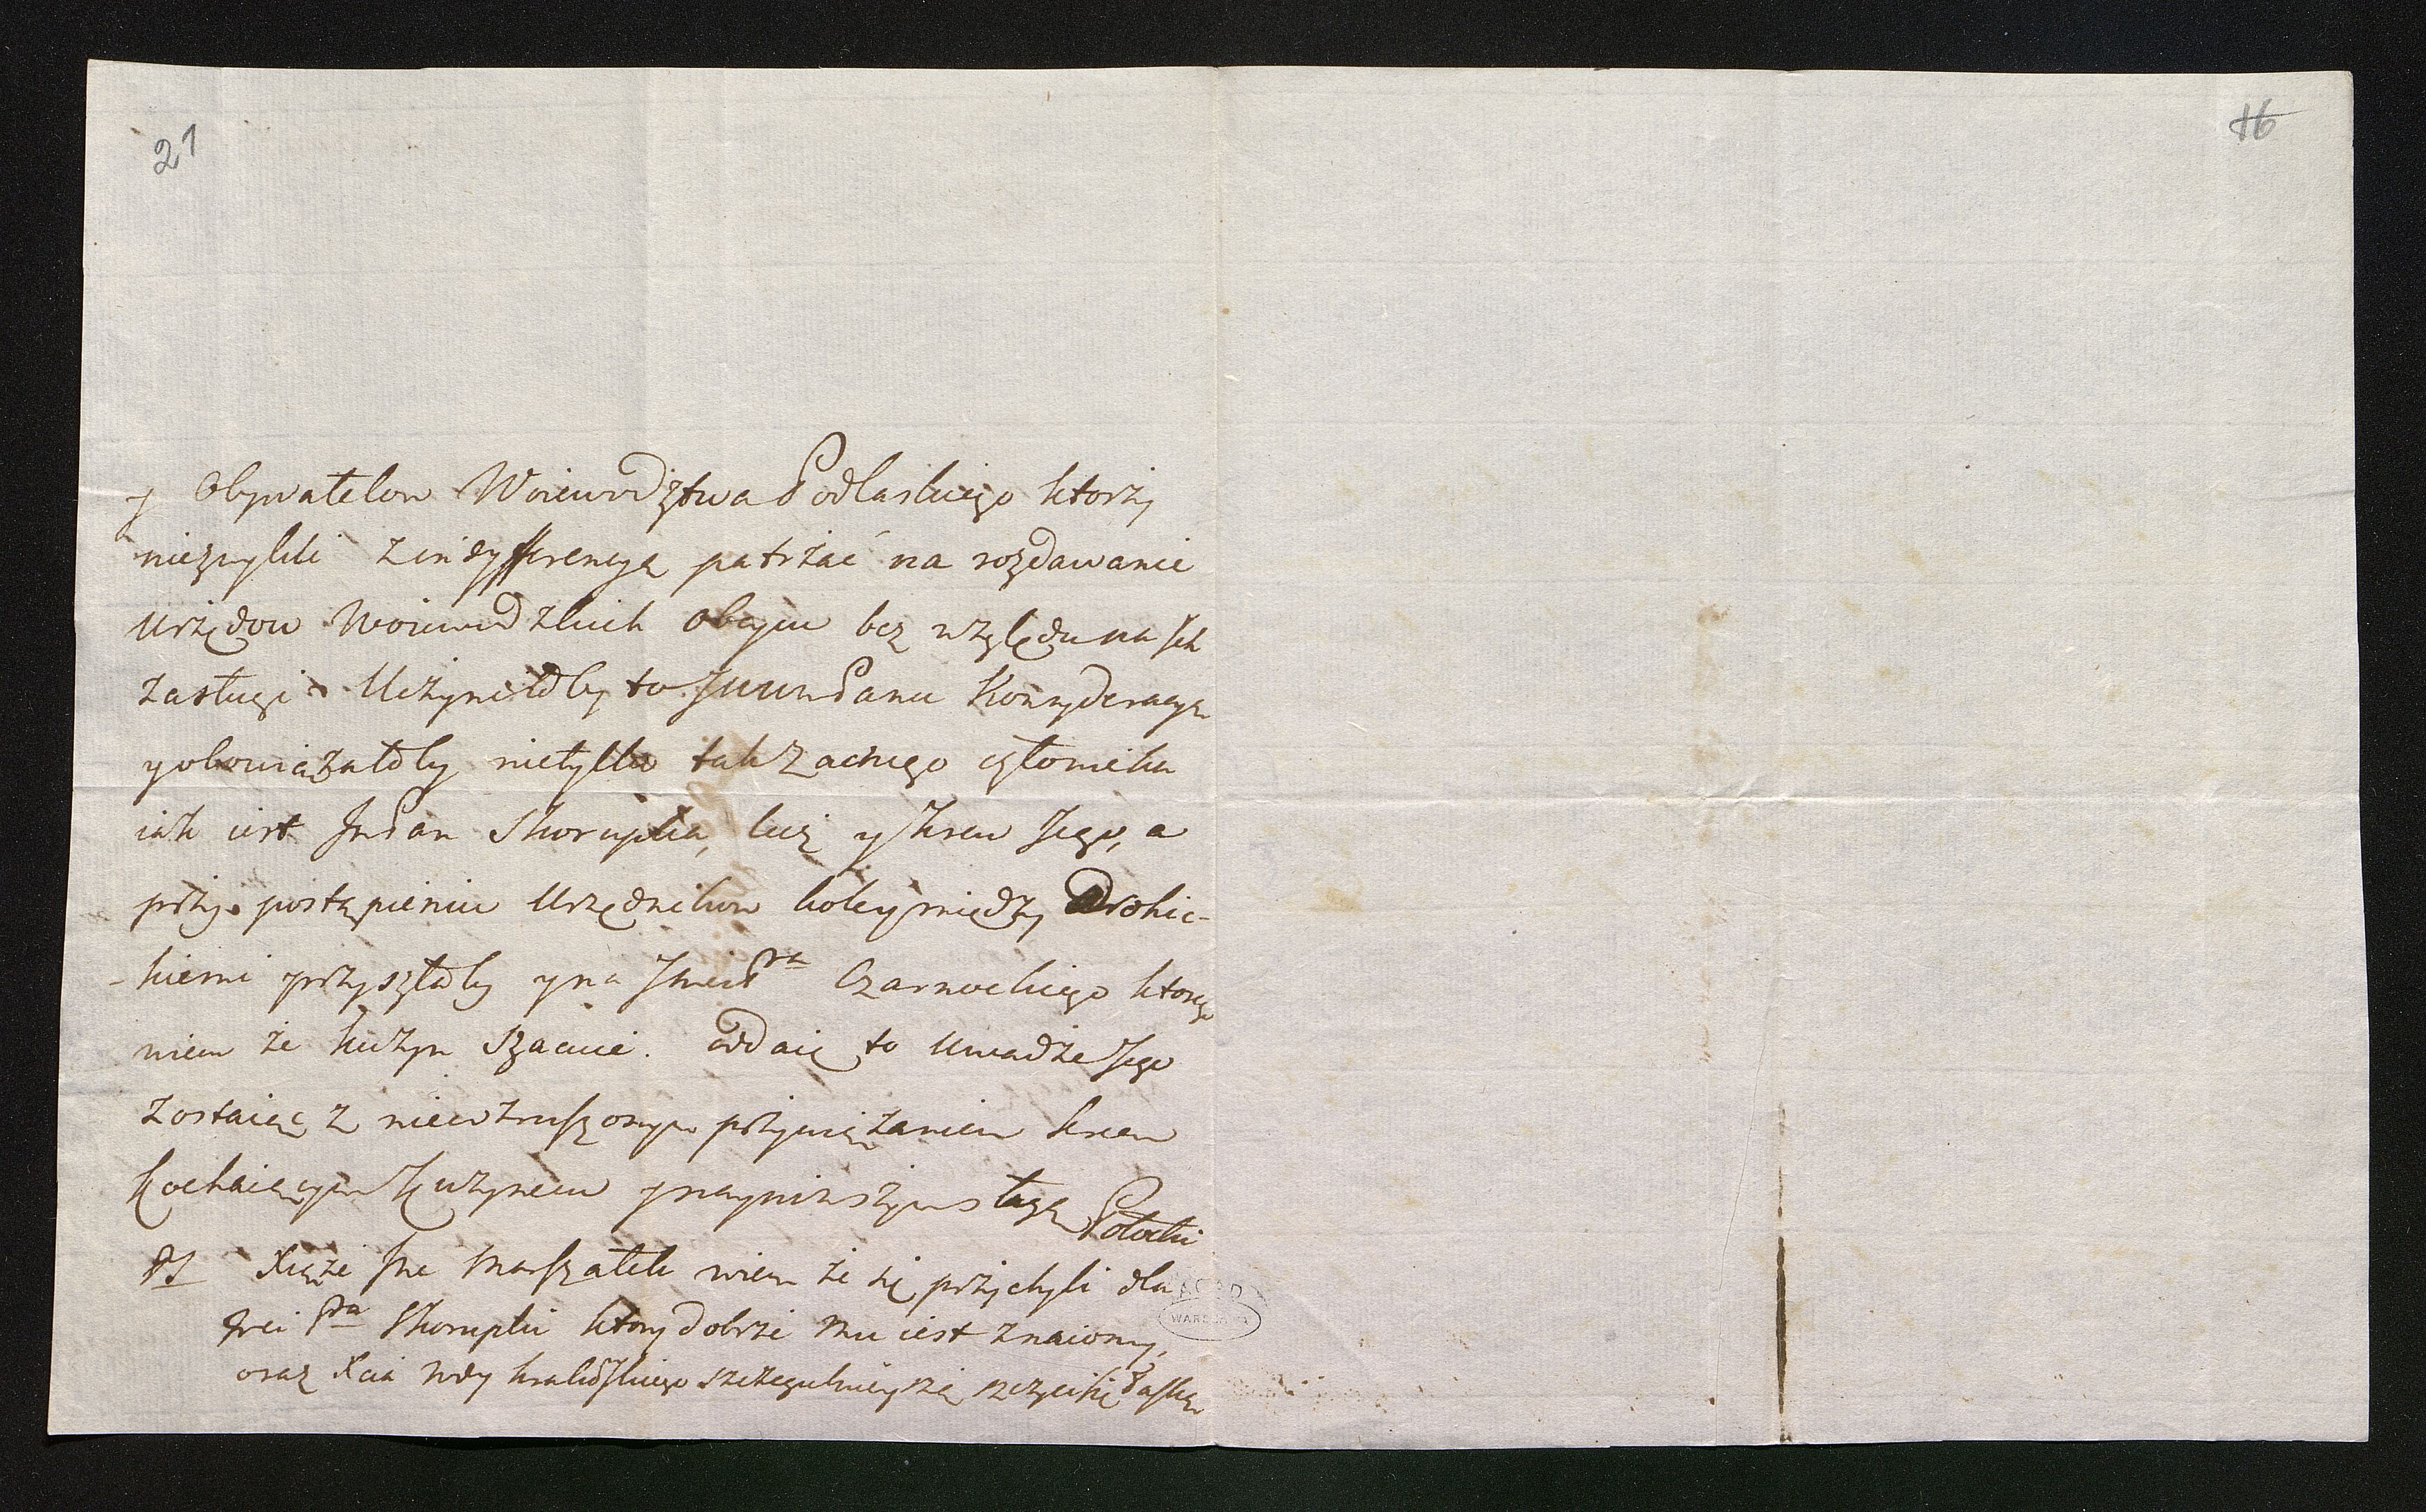 21
16
y Obywatelow Woiewodztwa Podlaskiego ktorzy
niezwykli z indyfferencyą patrzać na rozdawanie
Urzędow Woiewodzkich Obcym bez względu na Ich
zasługi. Uczyniłby to JWWPanu Konsyderacyą
y obowiązałby nietylko tak zacnego człowieka
iak iest JmPan Skorupka, lecz y krew Jego, a
przy postąpieniu Urzędnikow koley między Drohic-
-kiemi przyszłaby y na Jmci Pna Czarnockiego ktorego
wiem że kuzyn szacuie. Oddaię to Uwadze Jego
zostaiąc z niewzruszonym przywiązaniem krwi
kochaiącym Kuzynem y naynizszym sługą Potocki
PS Xiąże Jmc Marszałek wiem że się przychyli dla
Jmci Pna Skorupki ktory dobrze mu iest znaiomy,
oraz Xcia Wdy szczegulnieyszą szczyci się łaską
ACAD
WARSZAWA